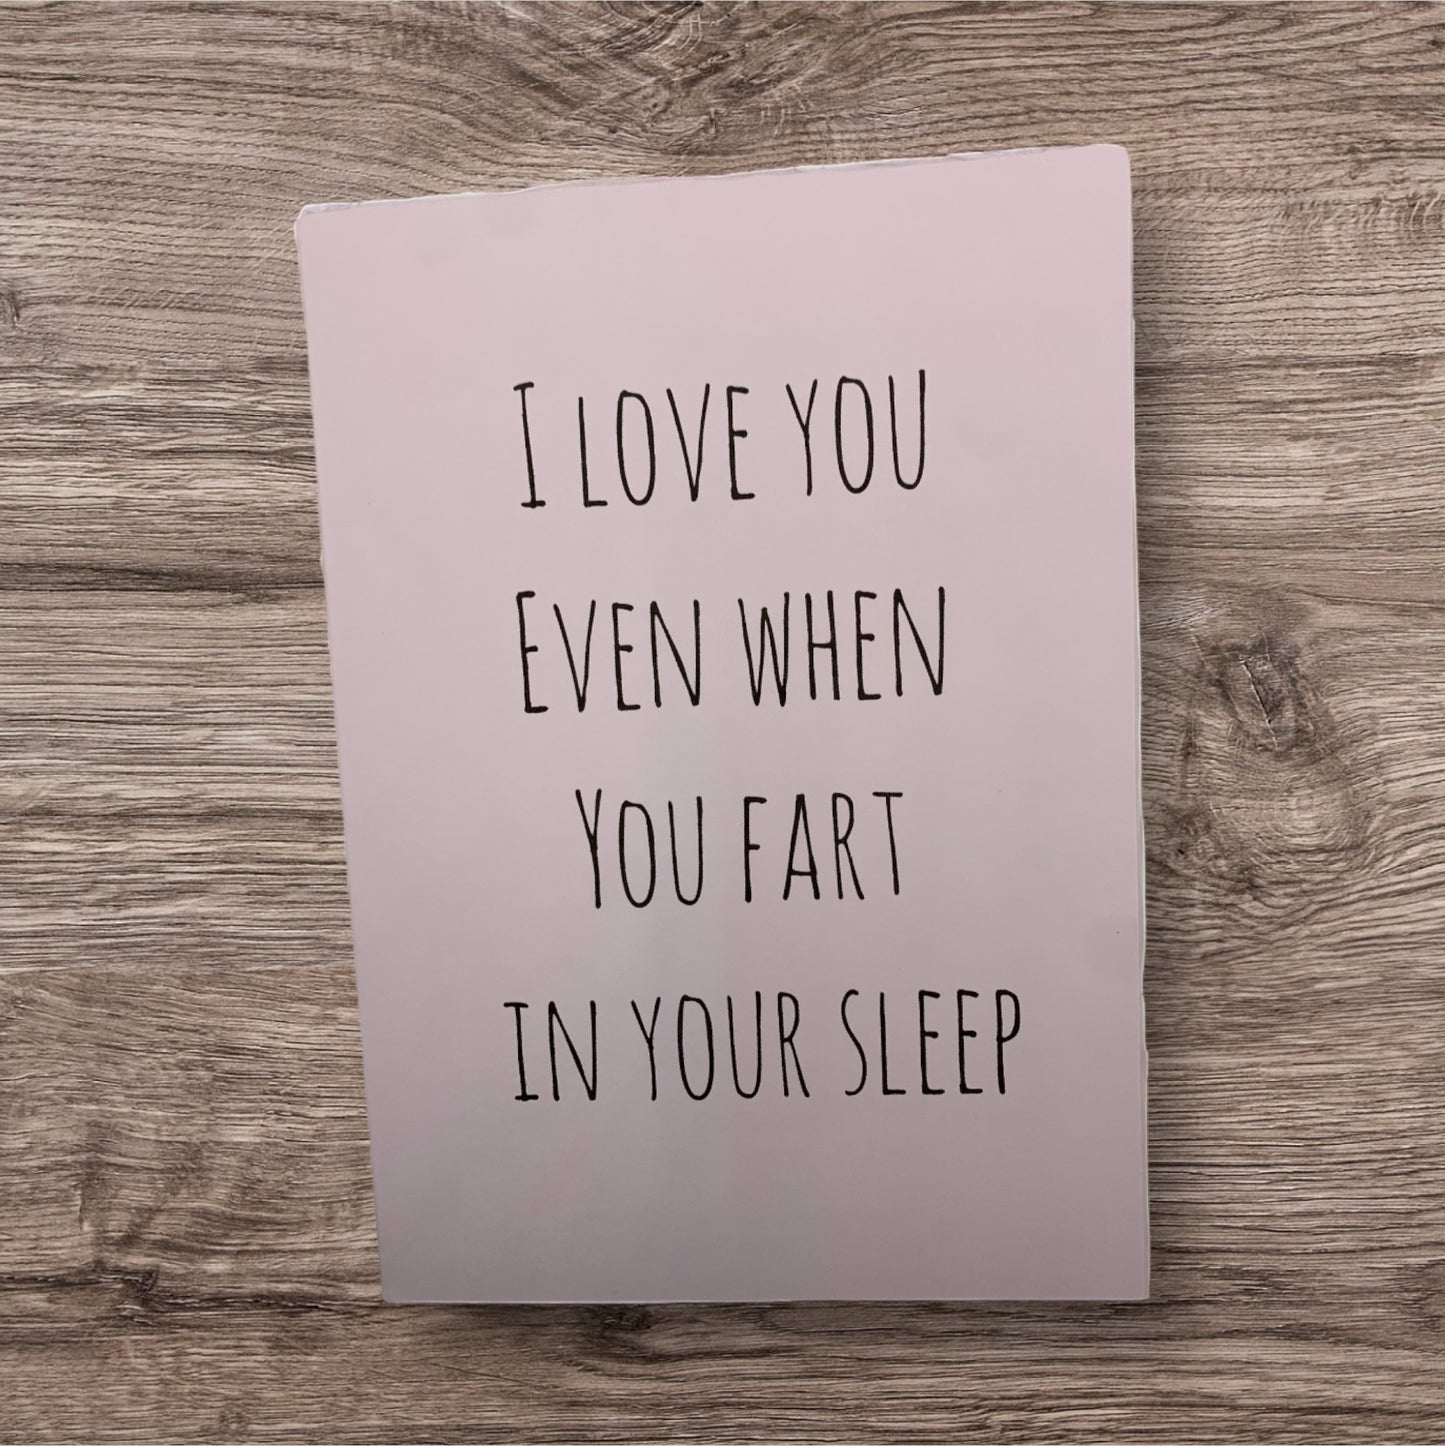 I LOVE YOU
EVEN WHEN
YOU FART
IN YOUR SLEEP